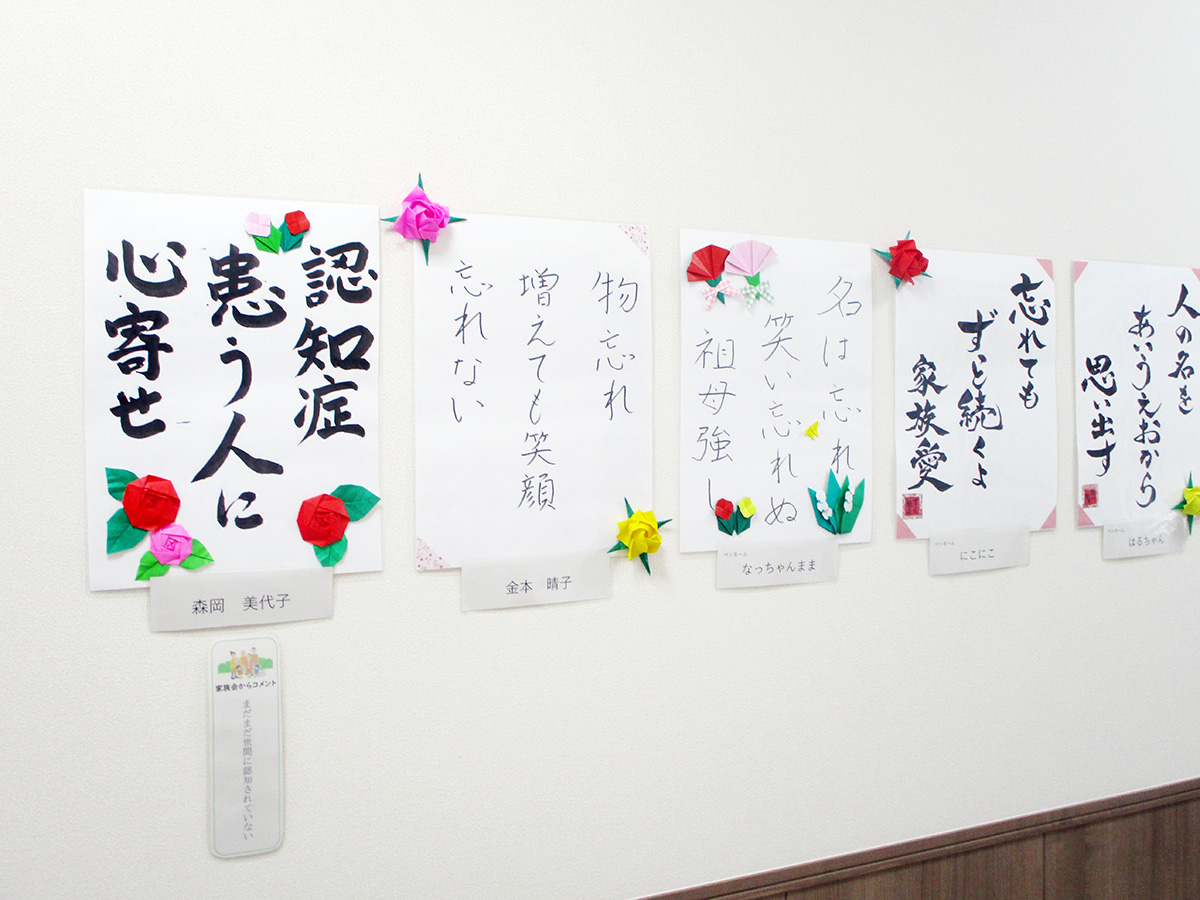 認知症
患う人に
心寄せ
森岡 美代子
家族会からコメント
まだまだ世間に認知されていない
物忘れ
増えても笑顔
忘れない
金本 晴子
名は忘れ
笑い忘れぬ
祖母強し
ペンネーム
なっちゃんまま
忘れても
ずっと続くよ
家族愛
ペンネーム
にこにこ
人の名を
あいうえおから
思い出す
ペンネーム
はるちゃん